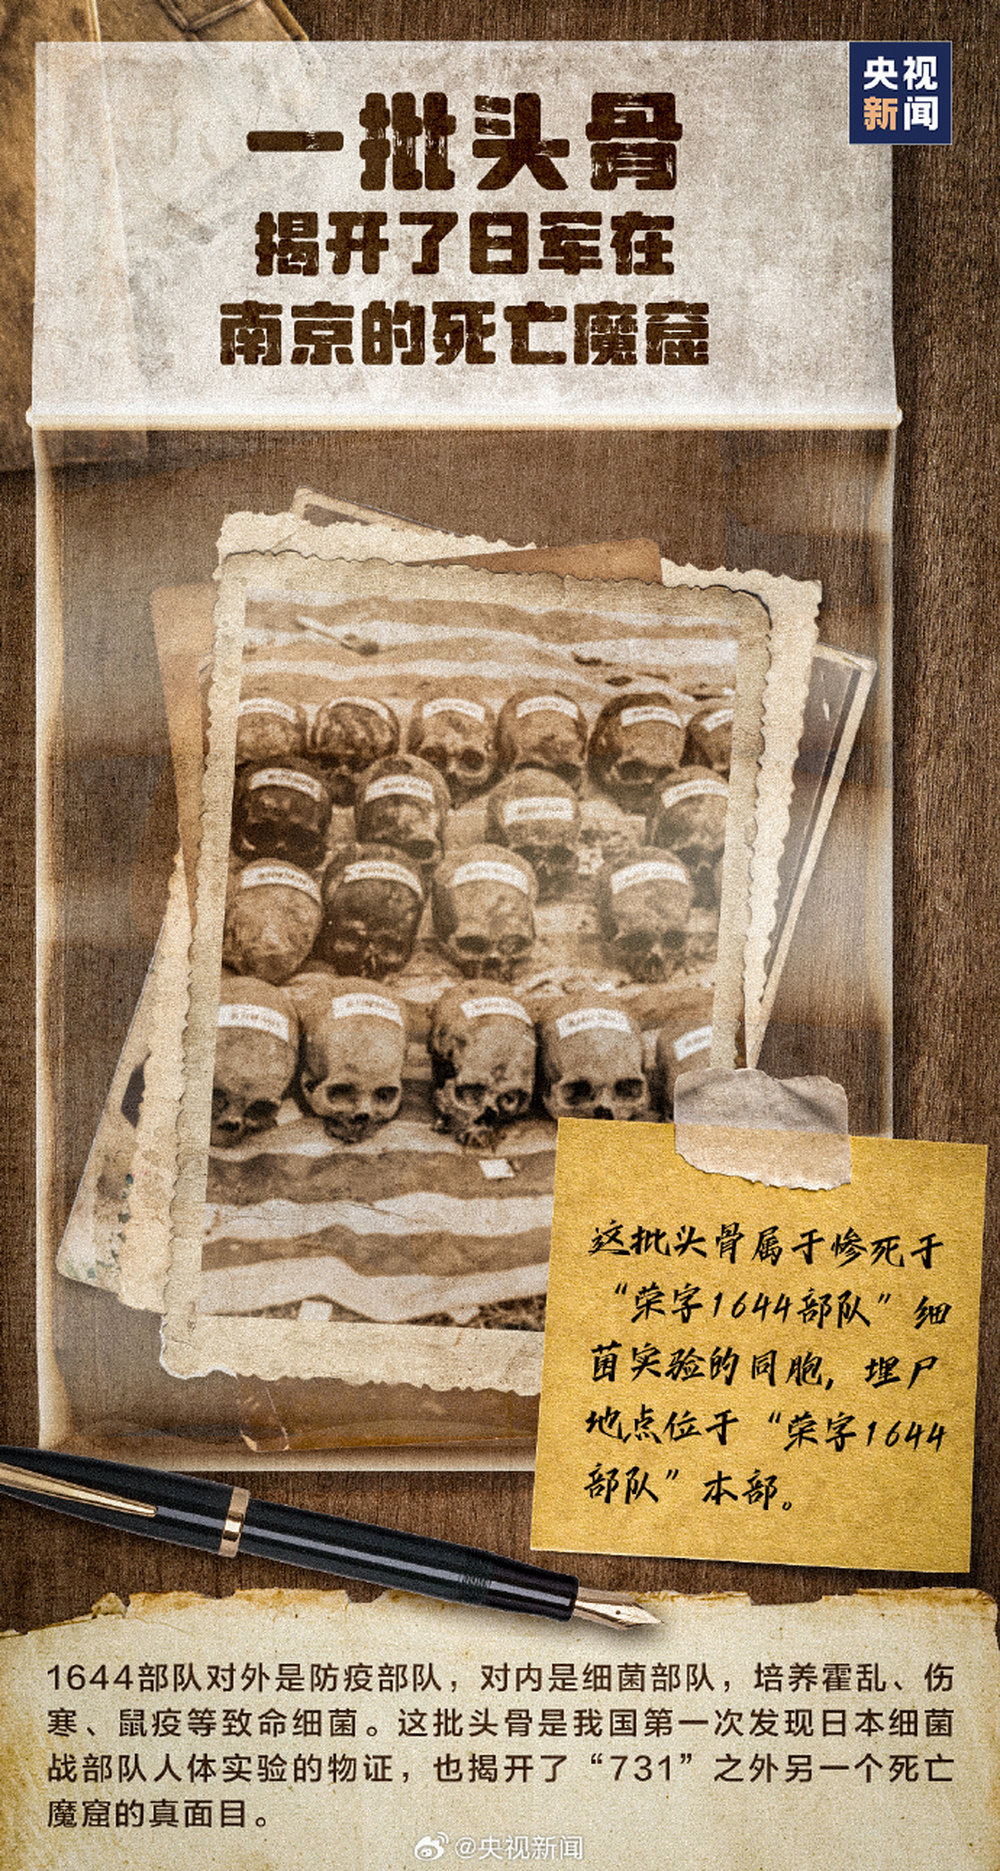 央视
新闻
一批头骨
揭开了日军在
南京的死亡魔窟
这批头骨属于惨死于
“荣字1644部队”细
菌实验的同胞，埋尸
地点位于“荣字1644
部队”本部。
1644部队对外是防疫部队，对内是细菌部队，培养霍乱、伤
寒、鼠疫等致命细菌。这批头骨是我国第一次发现日本细菌
战部队人体实验的物证，也揭开了“731”之外另一个死亡
魔窟的真面目。
@央视新闻